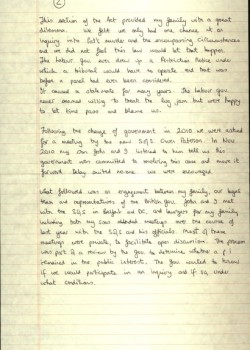 (2)
This section of the Act provided my family with a great
dilemma. We felt we only had one chance at an
inquiry into Pat's murder and the encompassing circumstances
and we did not feel this law would let that happen.
The Labour Gov. drew up a Restriction Notice under
which a tribunal would have to operate and that was
before a panel had even been convened.
It caused a stalemate for many years. The Labour gov.
never seemed willing to tackle the big jam but were happy
to let time pass and blame us.
Following the change of government in 2010 we were asked
for a meeting by the new S.O.S. Owen Paterson. In Nov
2010 my son John and I listened to him tell us his
government was committed to resolving this case and move it
forward. Delay suited no-one. we were encouraged.
What followed was an engagement between my family, our legal
team and representatives of the British Gov. John and I met
with the S.O.S in Belfast and DC, and lawyers for my family
including both my sons attended meetings over the course of
last year with the S.O.S and his officials. Most of these
meetings were private, to facilitate open discussions. The process
was part of a review by the Gov to determine whether a P.I
remained in the public interest. The Gov wanted to know
if we would participate in an inquiry and if so under
what conditions.